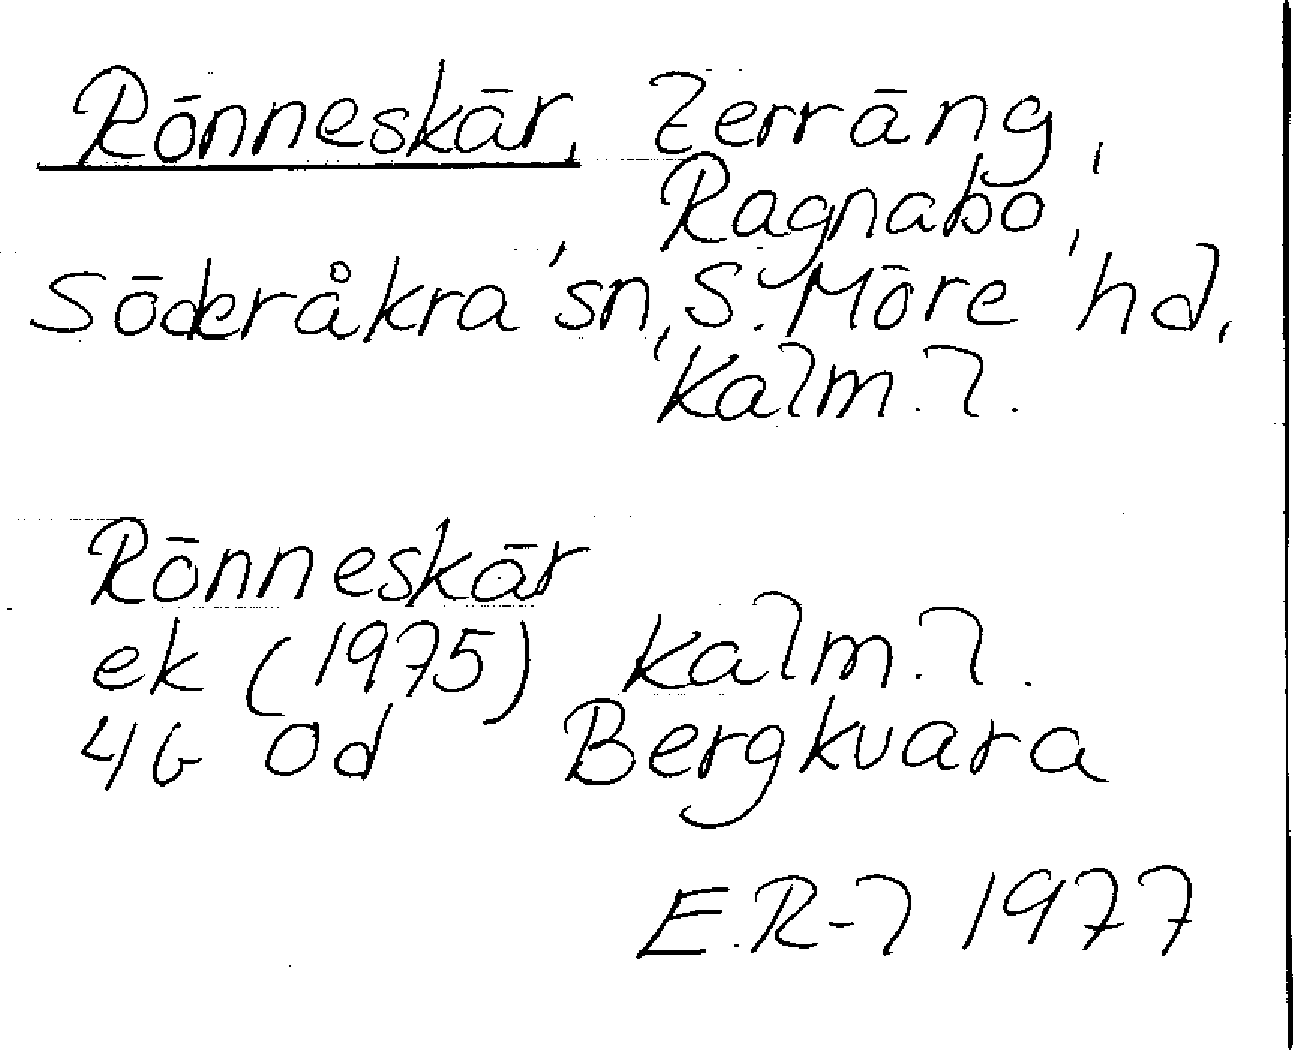 Rönneskär, Terräng,
Ragnabo,
Söderåkra sn, S. Möre hd,
Kalm. l.
Rönneskär
ek (1975) Kalm. l.
4G 0d Bergkvara
E.R-l 1977